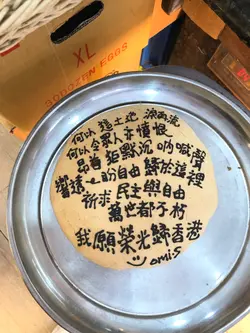 XL
DOZEN EGGS
何以 這土地 淚再流
何以 令眾人亦憤恨
昂首 拒默沉 吶喊聲
響透~盼自由 歸於這裡
祈求 民主與自由
萬世都不朽
我願榮光歸香港
omis